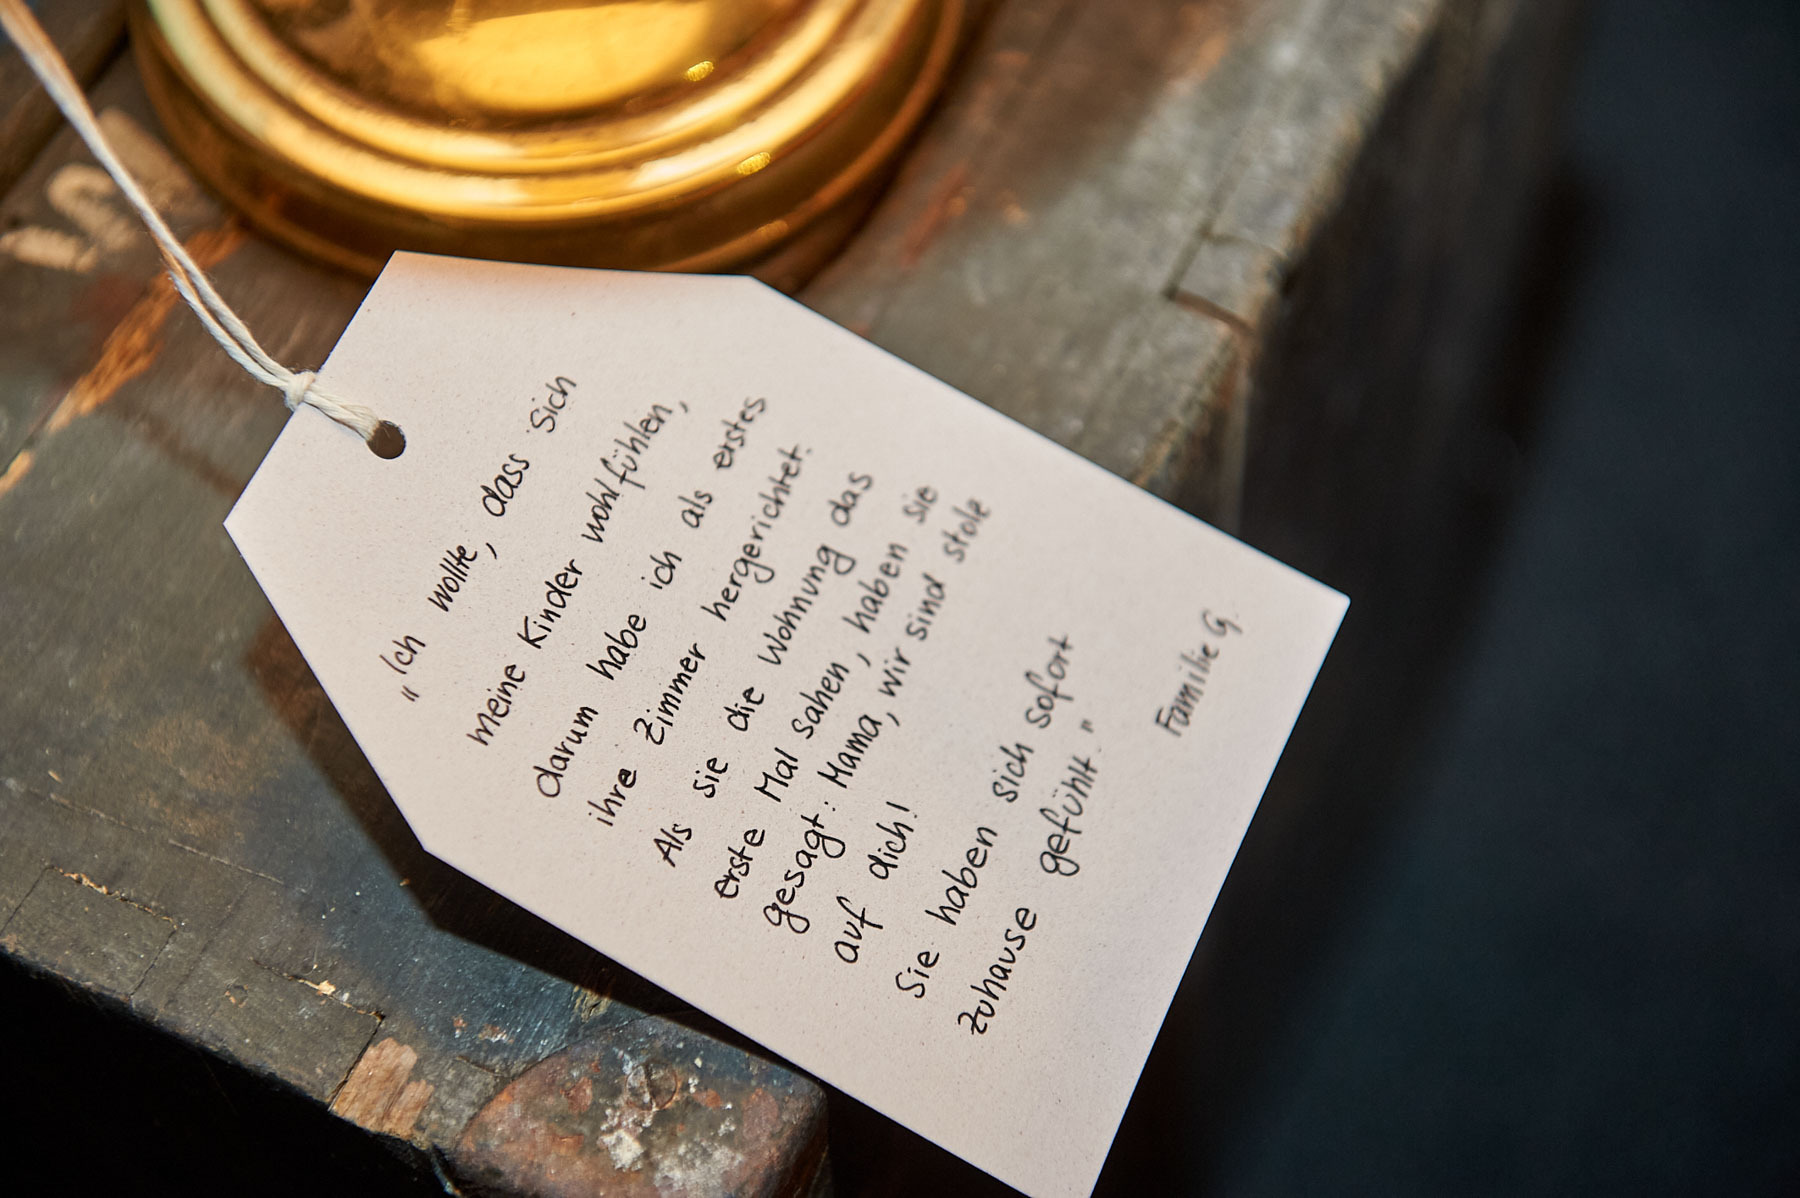 "Ich wollte, dass sich
meine Kinder wohlfühlen,
darum habe ich als erstes
ihre Zimmer hergerichtet.
Als sie die Wohnung das
erste Mal sahen, haben sie
gesagt: Mama, wir sind stolz
auf dich!
Sie haben sich sofort
zuhause gefühlt."
Familie G.